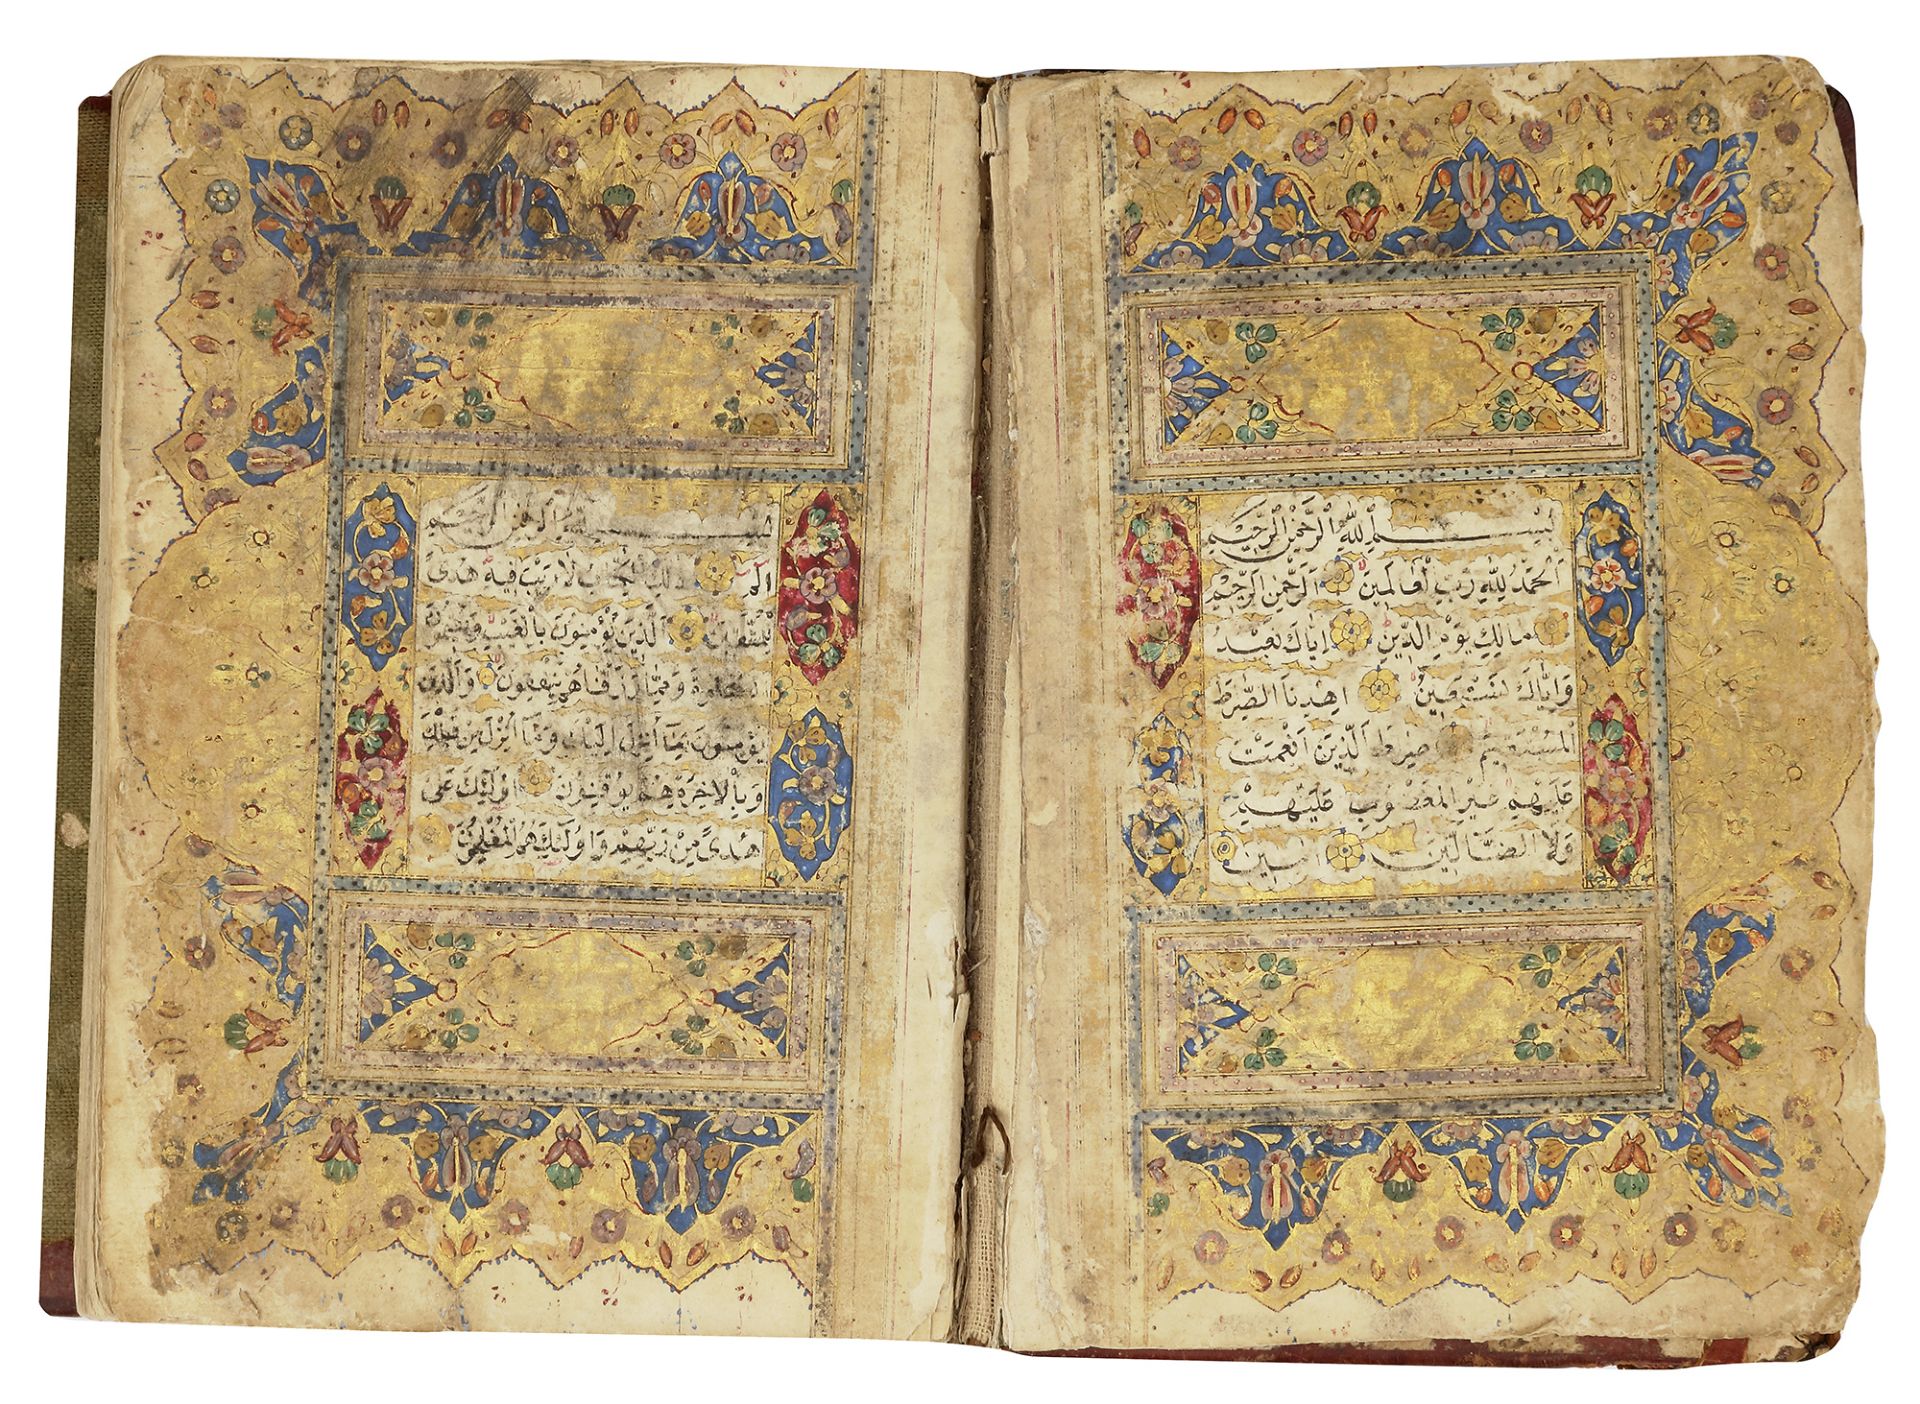 بِسْمِ اللهِ الرَّحْمٰنِ الرَّحِيْمِ
اَلْحَمْدُ لِلّٰهِ رَبِّ الْعَالَمِينَ الرَّحْمٰنِ الرَّحِيْمِ
مَالِكِ يَوْمِ الدِّينِ اِيَّاكَ نَعْبُدُ
وَاِيَّاكَ نَسْتَعِينُ اِهْدِنَا الصِّرَطَ
الْمُسْتَقِيمَ صِرَطَ الَّذِينَ اَنْعَمْتَ
عَلَيْهِمْ غَيْرِ الْمَغْضُوبِ عَلَيْهِمْ
وَلَا الضَّالِّينَ اٰمِين
بِسْمِ اللهِ الرَّحْمٰنِ الرَّحِيْمِ
الم ذٰلِكَ الْكِتَابُ لَا رَيْبَ فِيهِ هُدًى
لِلْمُتَّقِينَ اَلَّذِينَ يُؤْمِنُونَ بِالْغَيْبِ وَيُقِيمُونَ
الصَّلٰوةَ وَمِمَّا رَزَقْنَاهُمْ يُنْفِقُونَ وَالَّذِينَ
يُؤْمِنُونَ بِمَا اُنْزِلَ اِلَيْكَ وَمَا اُنْزِلَ مِنْ قَبْلِكَ
وَبِالْاٰخِرَةِ هُمْ يُوقِنُونَ اُولٰئِكَ عَلٰى
هُدًى مِنْ رَبِّهِمْ وَاُولٰئِكَ هُمُ الْمُفْلِحُونَ